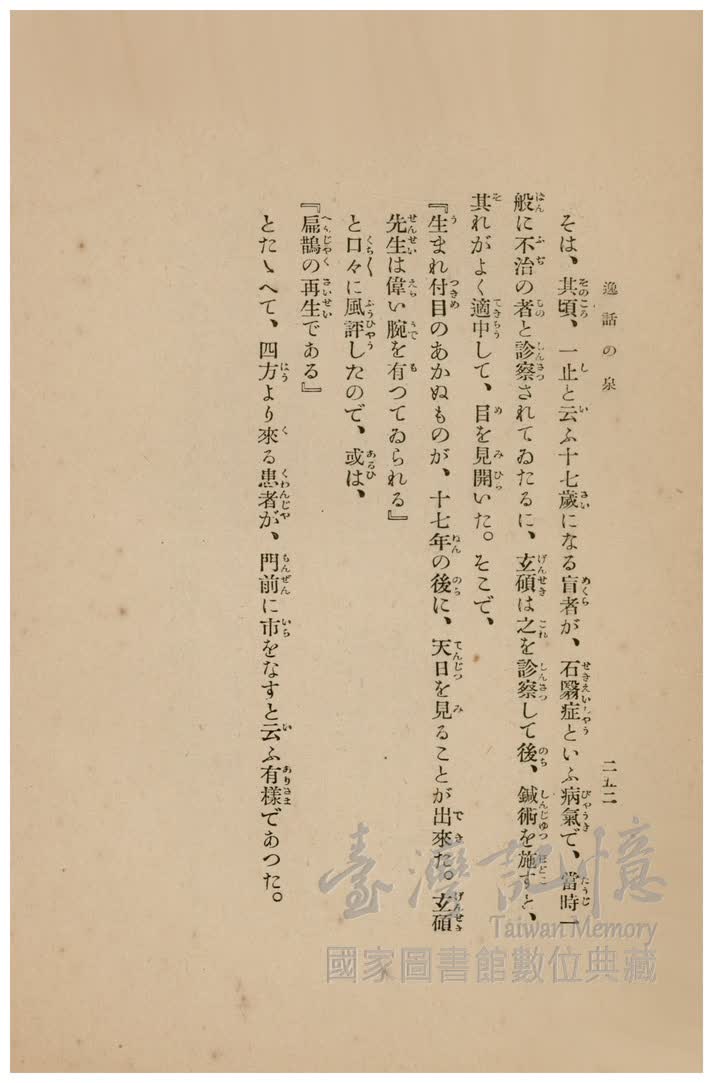 逸話の泉
二五二
そは、其頃、一止と云ふ十七歲になる盲者が、石翳症といふ病氣で、當時一
般に不治の者と診察されてゐたるに、玄碩は之を診察して後、鍼術を施すと、
其れがよく適中して、目を見開いた。そこで、
『生まれ付目のあかぬものが、十七年の後に、天日を見ることが出來た。玄碩
先生は偉い腕を有つてゐられる』
と口々〱に風評したので、或は、
『扁鵲の再生である』
とたゝへて、四方より來る患者が、門前に市をなすと云ふ有樣であつた。
臺灣記憶
Taiwan Memory
國家圖書館數位典藏